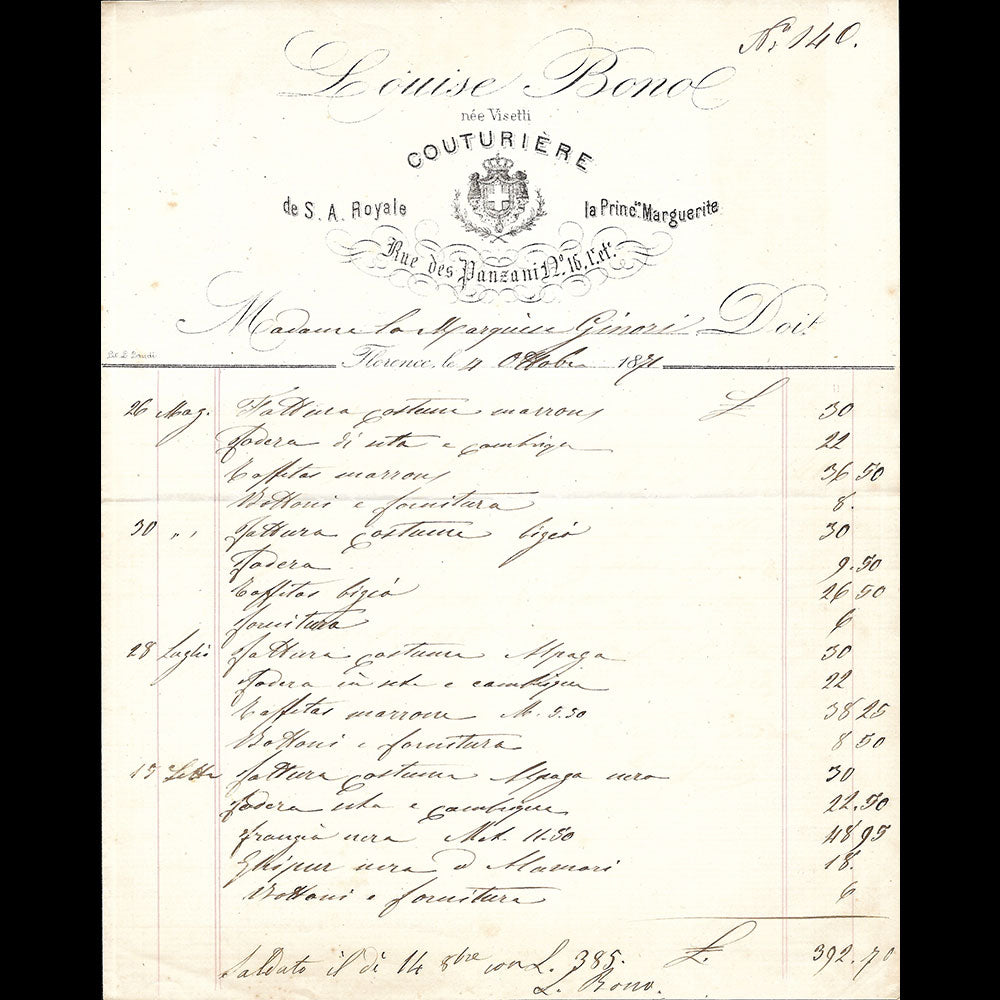 No. 140.
Louise Bono
née Visetti
COUTURIÈRE
de S. A. Royale la Princ.sse Marguerite
Rue des Panzani No. 16, 1r. et.
Madame la Marquise Ginori Doit
Florence, le 4 Ottobre 1871
26 Mag. Fattura costume marrons £ 30
Fodera di seta e cambrige 22
Taffetas marrons 36 50
Bottoni e fornitura 8.
30 " " Fattura costume bigio 30
Fodera 9.50
Taffetas bigio 26 50
fornitura 6
28 Luglio Fattura costume Alpaga 30
Fodera in seta e cambrigue 22
Taffetas marrone M. 5.50 38 25
Bottoni e fornitura 8 50
15 Sette Fattura costume Alpaga nero 30
Fodera seta e cambrigue 22.50
frangia nera Met. 11.50 48 95
Ghipur nera 18.
Bottoni e fornitura 6
Saldato il dì 14 8bre con L. 385. £. 392.70
L. Bono.